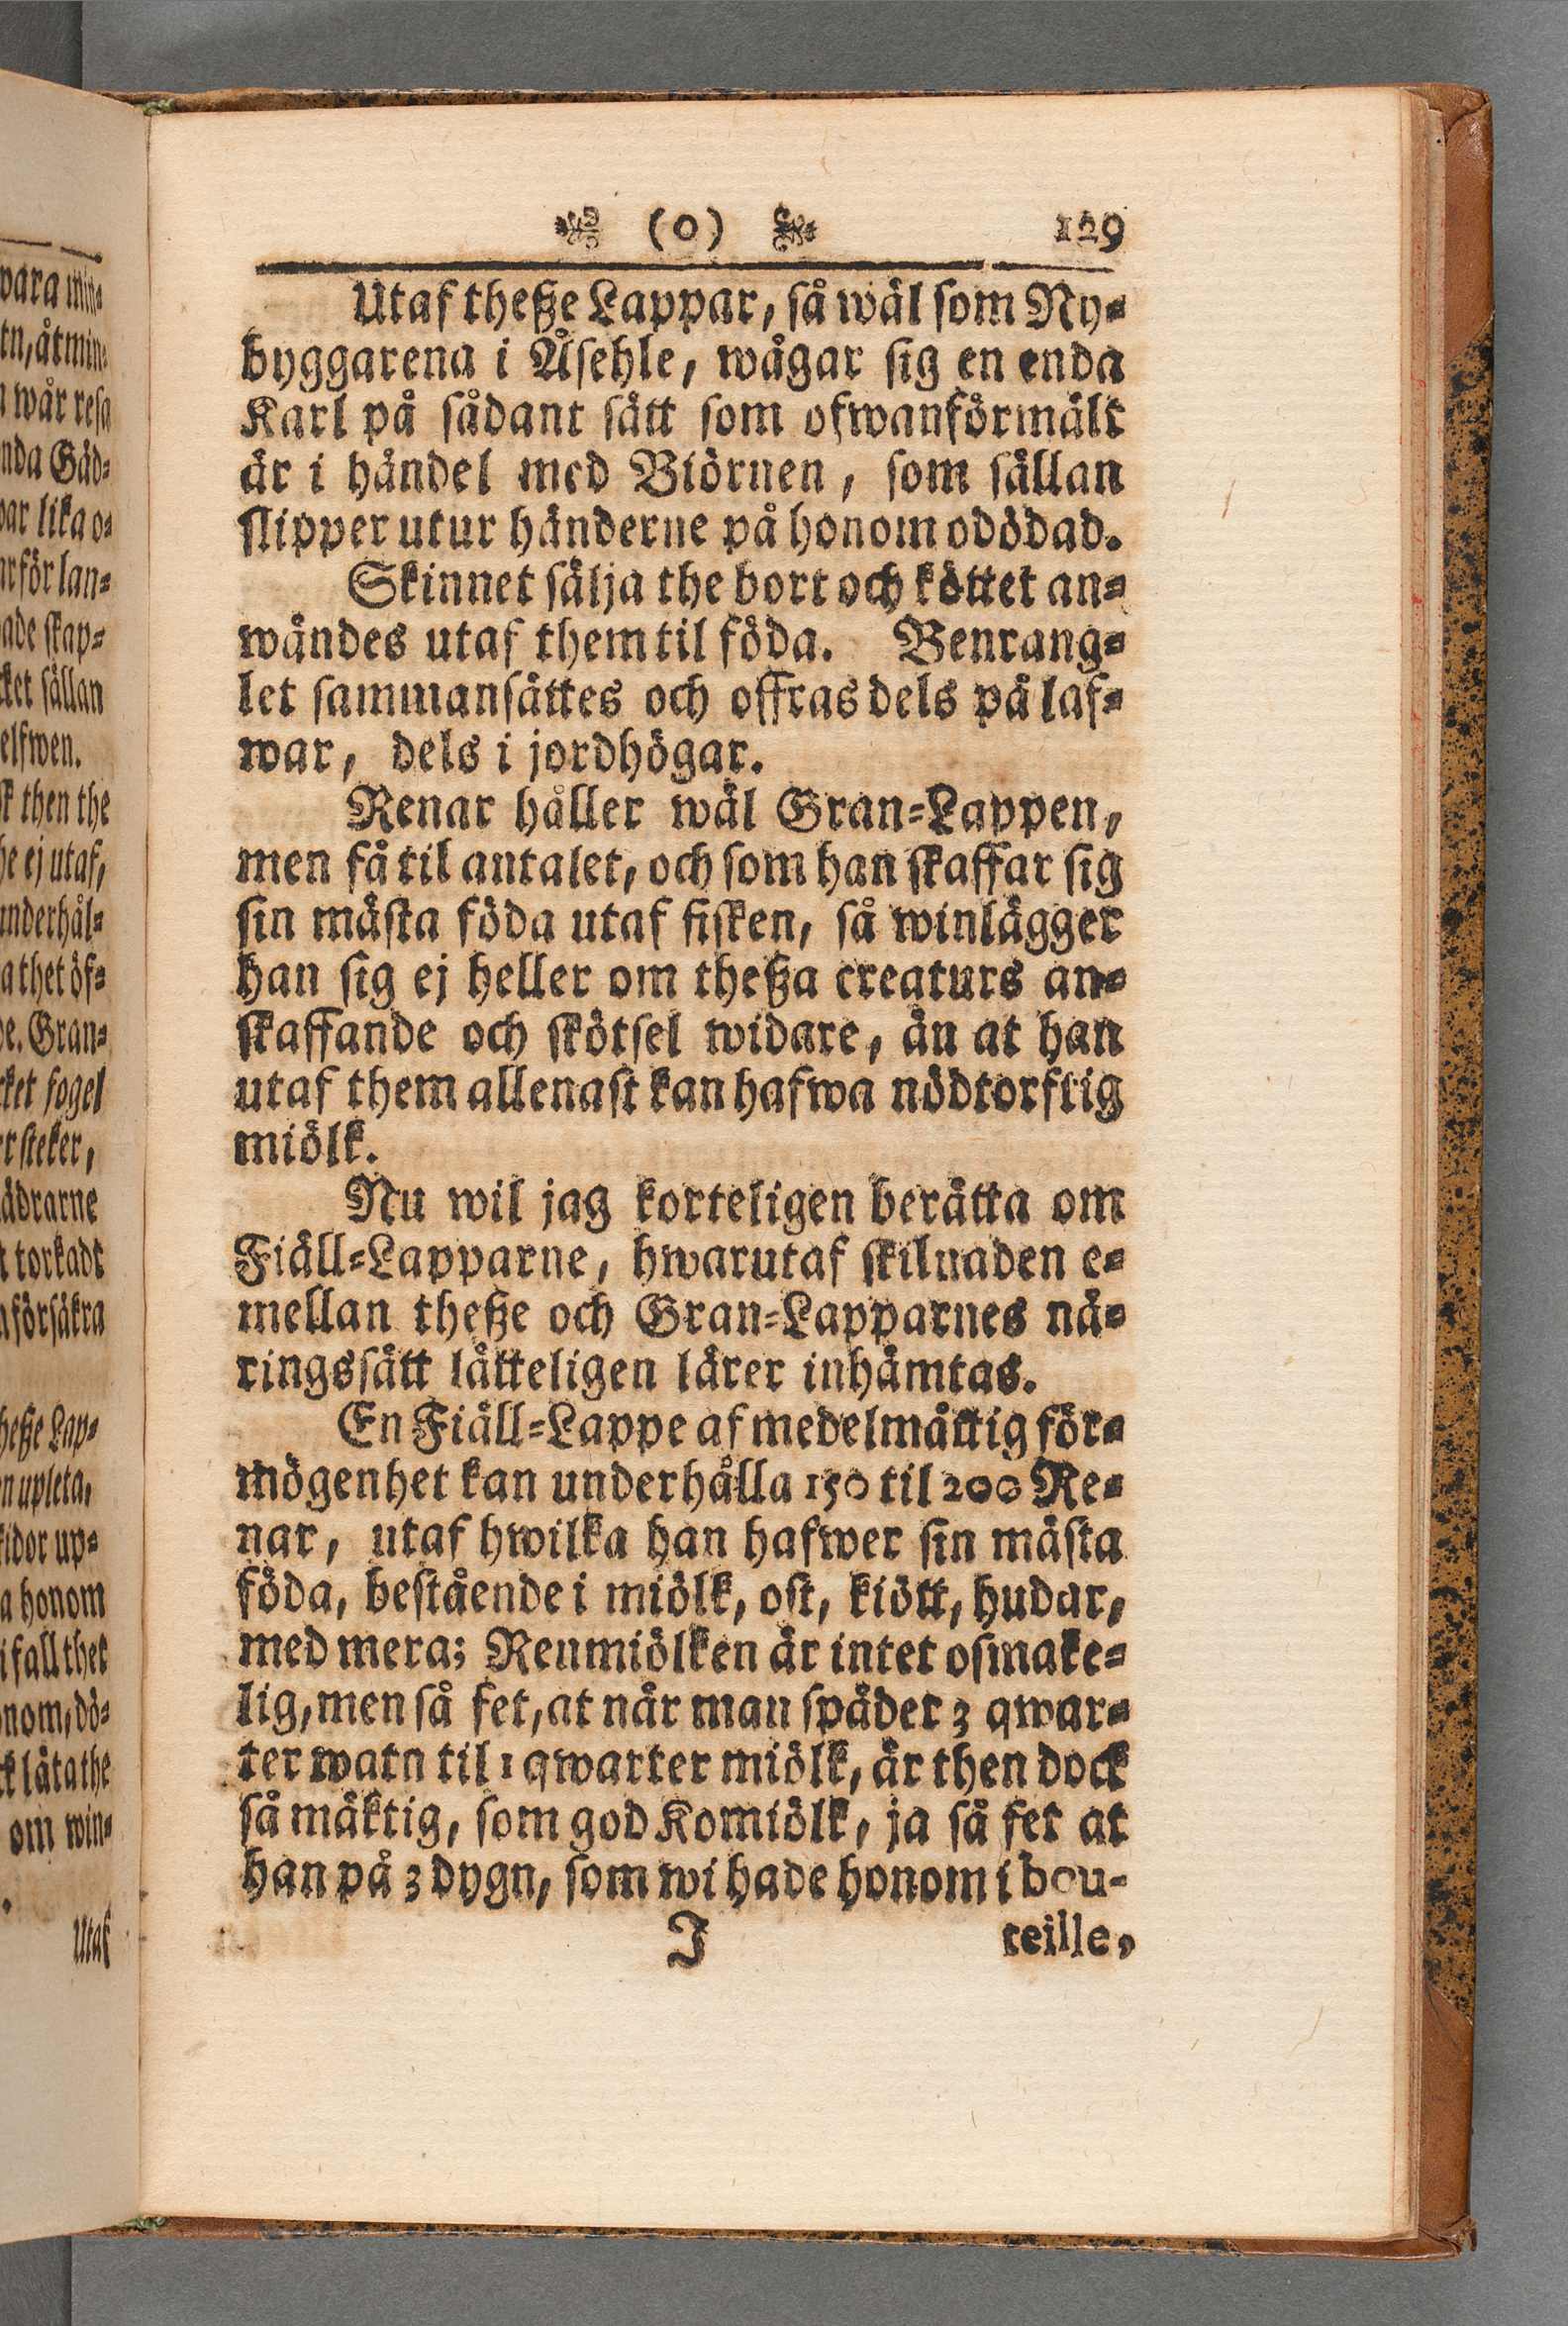 wara min-
tn, åtmin-
wår resa
nda Gäd-
lika o-
för lan-
ade skap-
ket sällan
elfwen.
then the
ej utaf,
underhål-
thet öf-
Gran-
ket fogel
steker,
ädrarne
torkadt
försäkra
theße Lap-
upleta,
up-
a honom
i fall thet
nom, dö-
låta the
om win-
Utaf
(0) 129
Utaf theße Lappar, så wäl som Ny-
byggarena i Åsehle, wågar sig en enda
Karl på sådant sätt som ofwanförmält
är i händel med Biörnen, som sällan
slipper utur händerne på honom odödad.
Skinnet sälja the bort och köttet an-
wändes utaf them til föda. Benrang-
let sammansättes och offras dels på laf-
war, dels i jordhögar.
Renar håller wäl Gran-Lappen,
men få til antalet, och som han skaffar sig
sin mästa föda utaf fisken, så winlägger
han sig ej heller om theßa creaturs an-
skaffande och skötsel widare, än at han
utaf them allenast kan hafwa nödtorftig
miölk.
Nu wil jag korteligen berätta om
Fiäll-Lapparne, hwarutaf skilnaden e-
mellan theße och Gran-Lapparnes nä-
ringssätt lätteligen lärer inhämtas.
En Fiäll-Lappe af medelmåttig för-
mögenhet kan underhålla 150 til 200 Re-
nar, utaf hwilka han hafwer sin mästa
föda, bestående i miölk, ost, kiött, hudar,
med mera; Renmiölken är intet osmake-
lig, men så fet, at når man späder 3 qwar-
ter watn til 1 qwarter miölk, är then dock
så mäktig, som god Komiölk, ja så fet at
han på 3 dygn, som wi hade honom i bou-
J teille,